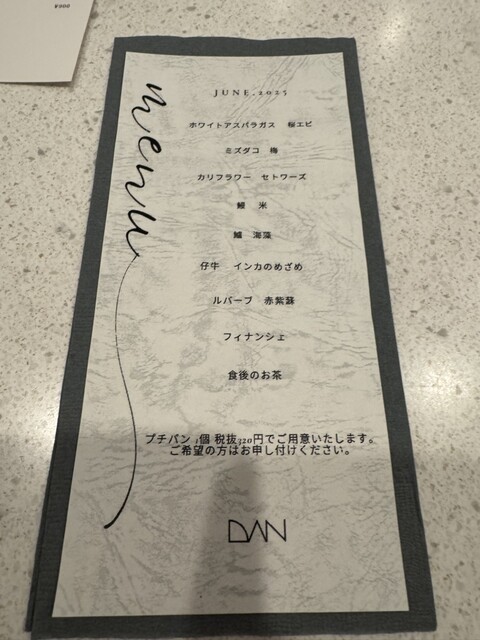 menu
JUNE.2025
ホワイトアスパラガス 桜エビ
ミズダコ 梅
カリフラワー セトワーズ
鰻 米
鱸 海藻
仔牛 インカのめざめ
ルバーブ 赤紫蘇
フィナンシェ
食後のお茶
プチパン 1個 税抜320円でご用意いたします。
ご希望の方はお申し付けください。
DAN